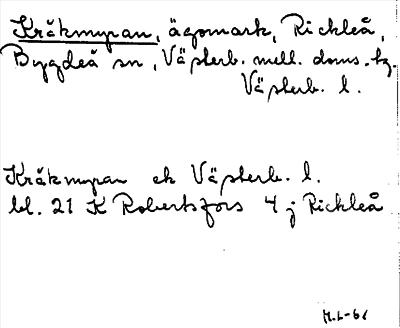 Kråkmyran, ägomark, Rickleå,
Bygdeå sn, Västerb. mell. doms. tg.
Västerb. l.
Kråkmyran ek Västerb. l.
bl. 21 K Robertsfors 4 j Rickleå
H.L-61